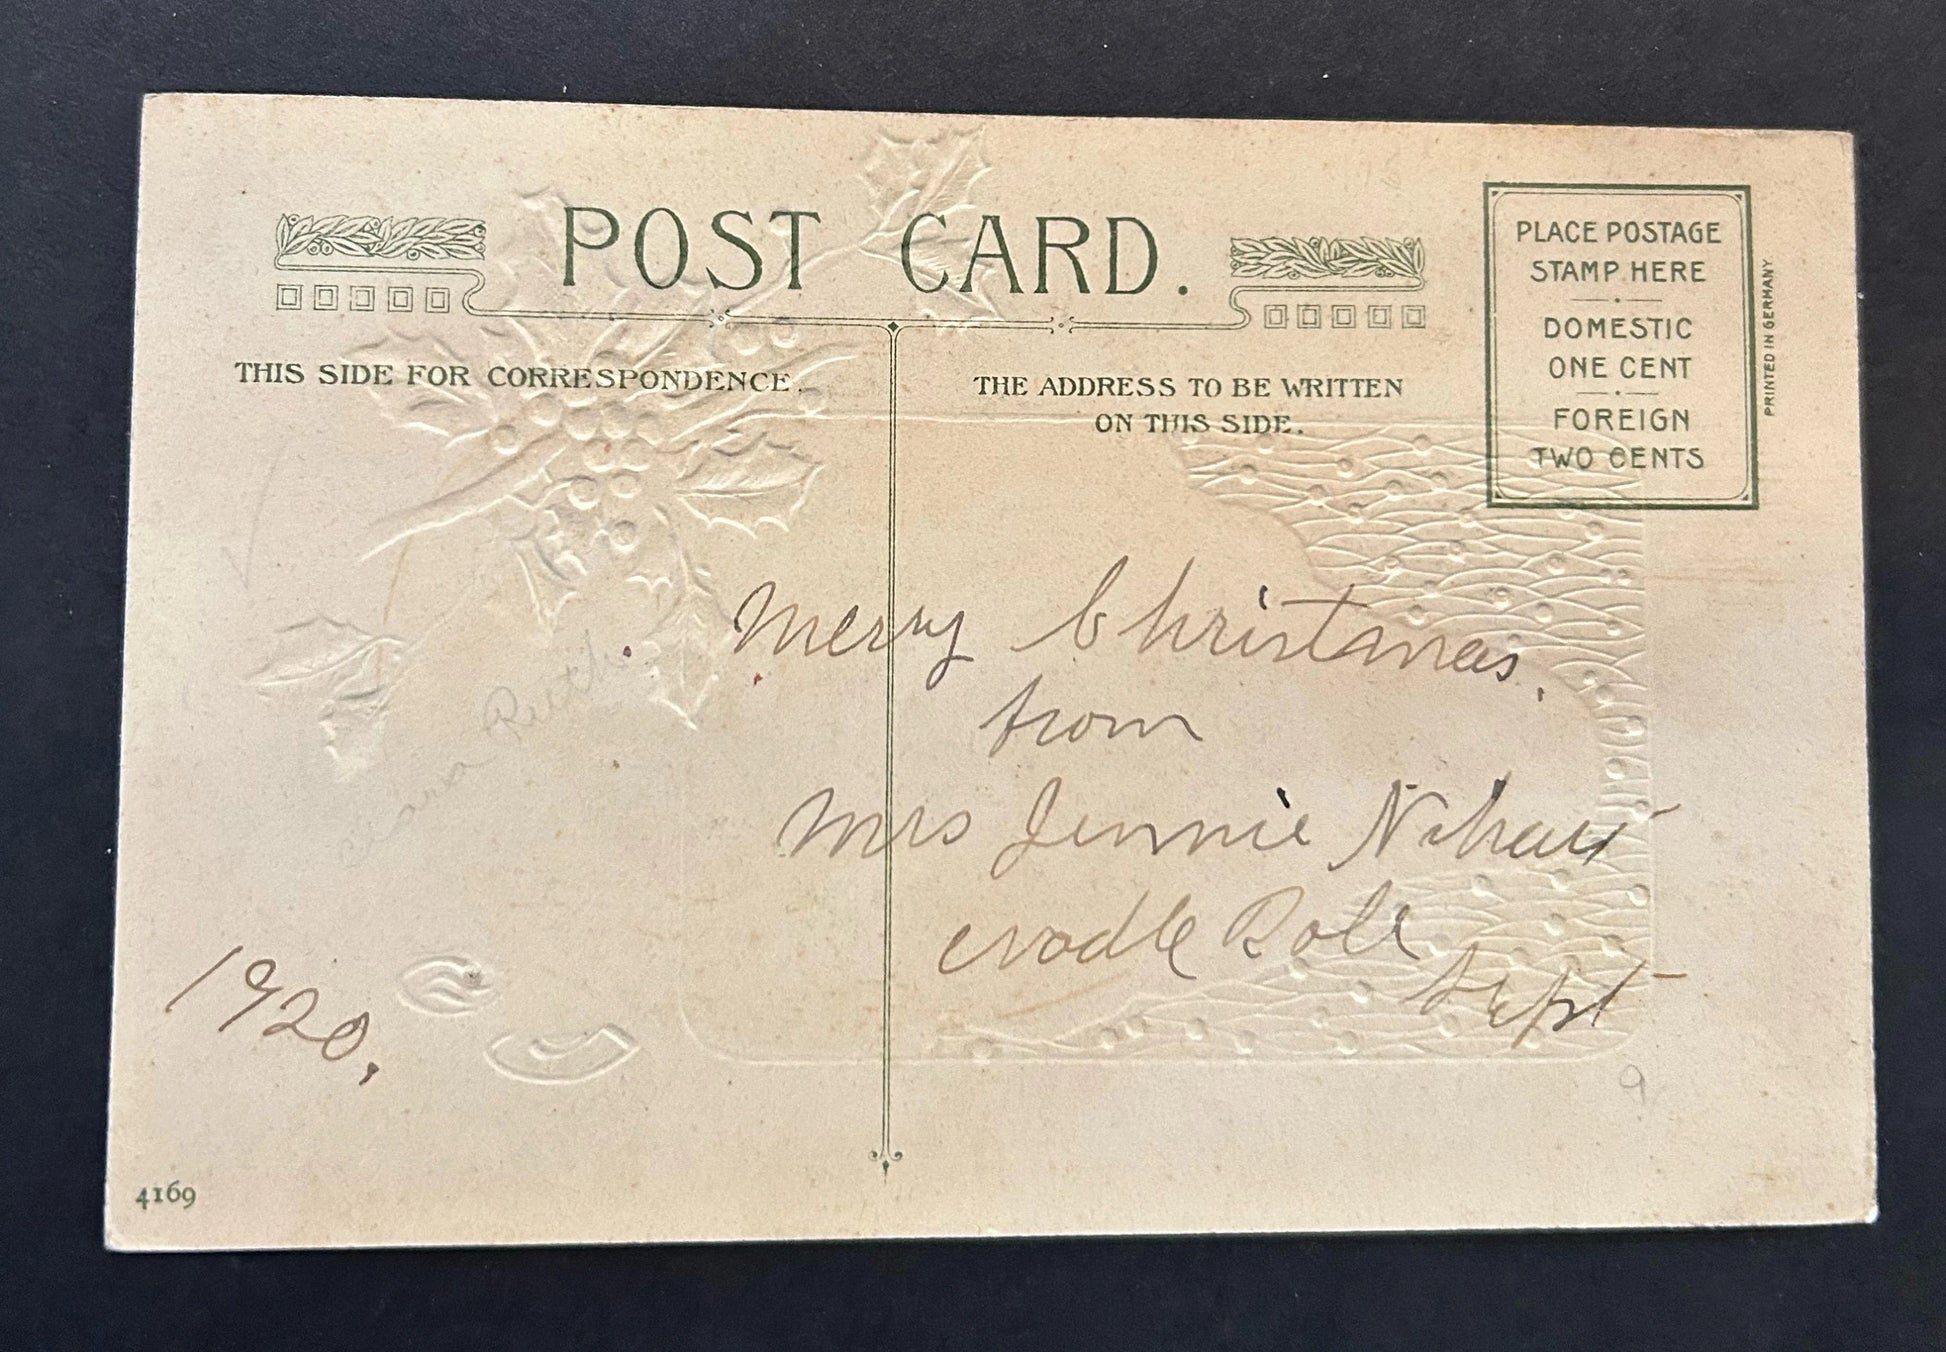 POST CARD.
THIS SIDE FOR CORRESPONDENCE.
THE ADDRESS TO BE WRITTEN
ON THIS SIDE.
PLACE POSTAGE
STAMP HERE
DOMESTIC
ONE CENT
FOREIGN
TWO CENTS
PRINTED IN GERMANY
Merry Christmas,
from
Mrs Jennie
cradle Roll
Supt
Ruth
1920,
9
4169